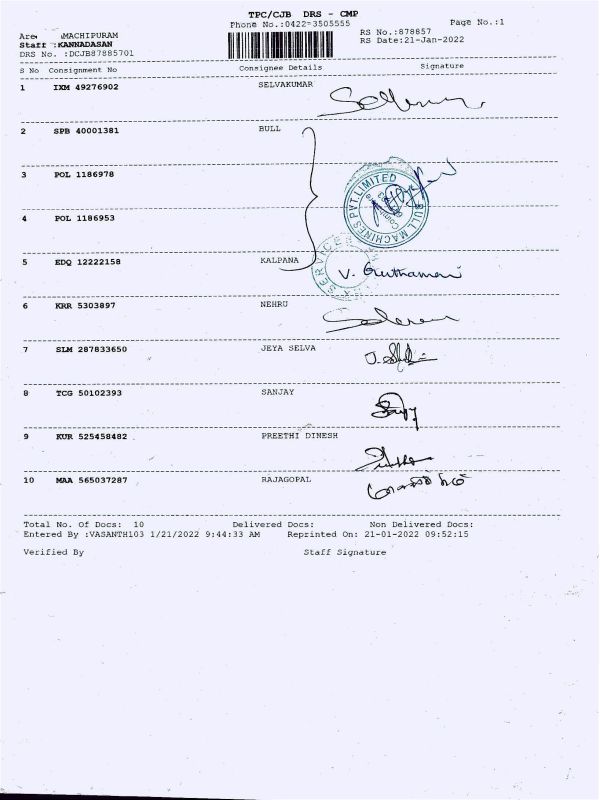 TPC/CJB DRS - CMP
Phone No.:0422-3505555
Page No.:1
RS No.:878857
RS Date:21-Jan-2022
Are :MACHIPURAM
Staff :KANNADASAN
DRS No. :DCJB87885701
S No Consignment No Consignee Details Signature
1 IXM 49276902 SELVAKUMAR
2 SPB 40001381 BULL
3 POL 1186978
BULL MACHINES PVT LIMITED
4 POL 1186953
5 EDQ 12222158 KALPANA
SERVICE
6 KRR 5303897 NEHRU
7 SLM 287833650 JEYA SELVA
8 TCG 50102393 SANJAY
9 KUR 525458482 PREETHI DINESH
10 MAA 565037287 RAJAGOPAL
Total No. Of Docs: 10 Delivered Docs: Non Delivered Docs:
Entered By :VASANTH103 1/21/2022 9:44:33 AM Reprinted On: 21-01-2022 09:52:15
Verified By Staff Signature